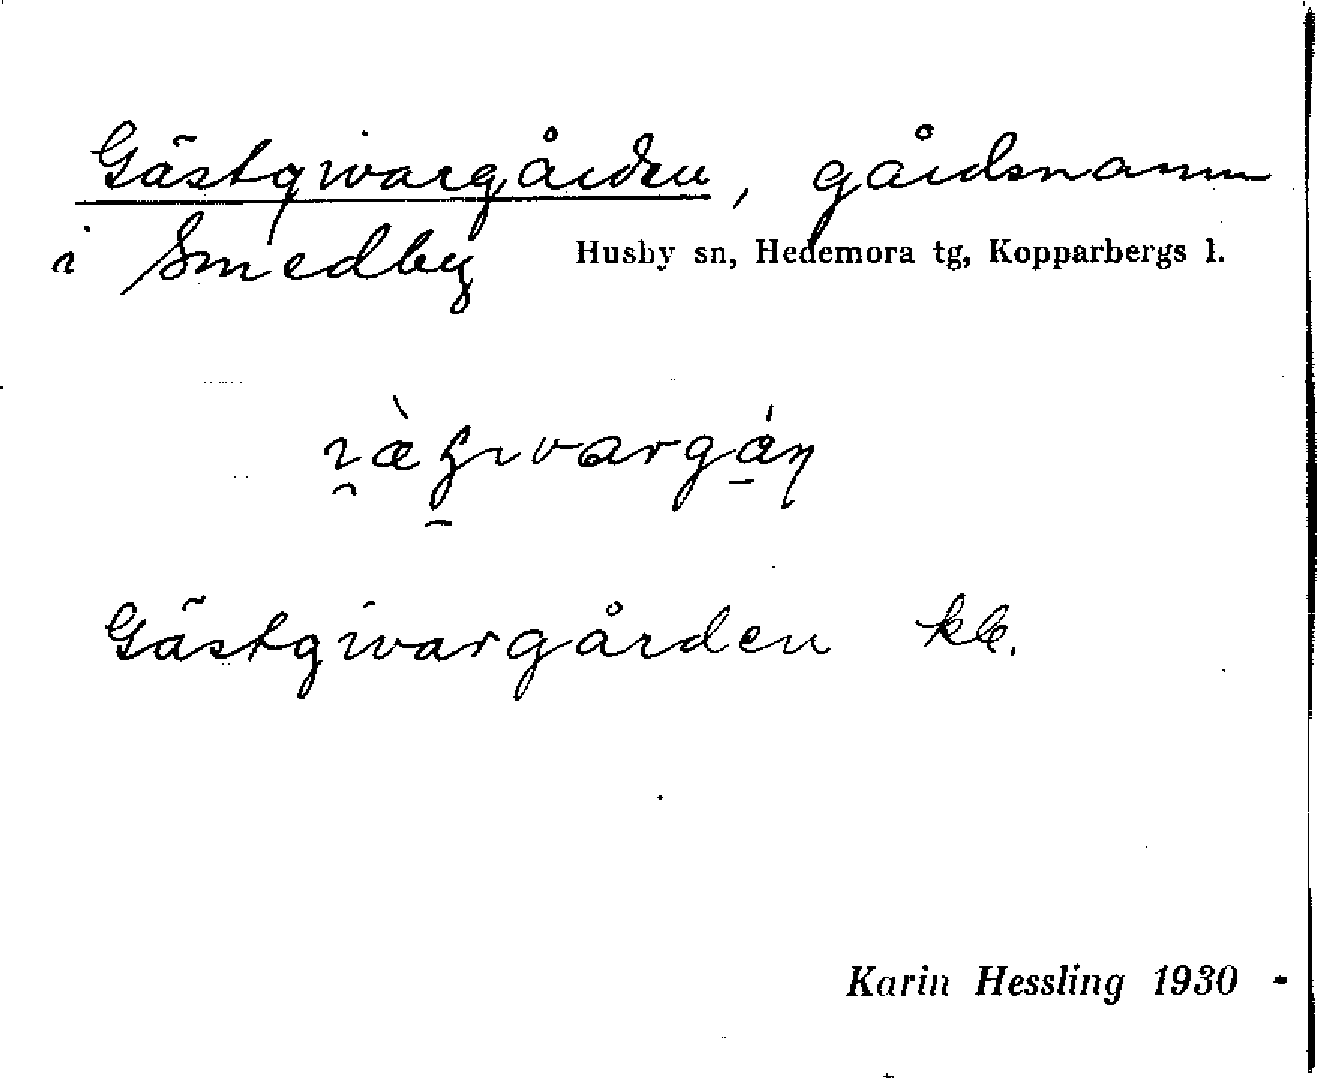 Gästgivargården, gårdsnamn
i Smedby Husby sn, Hedemora tg, Kopparbergs l.
Gästgivargården kb.
Karin Hessling 1930 -